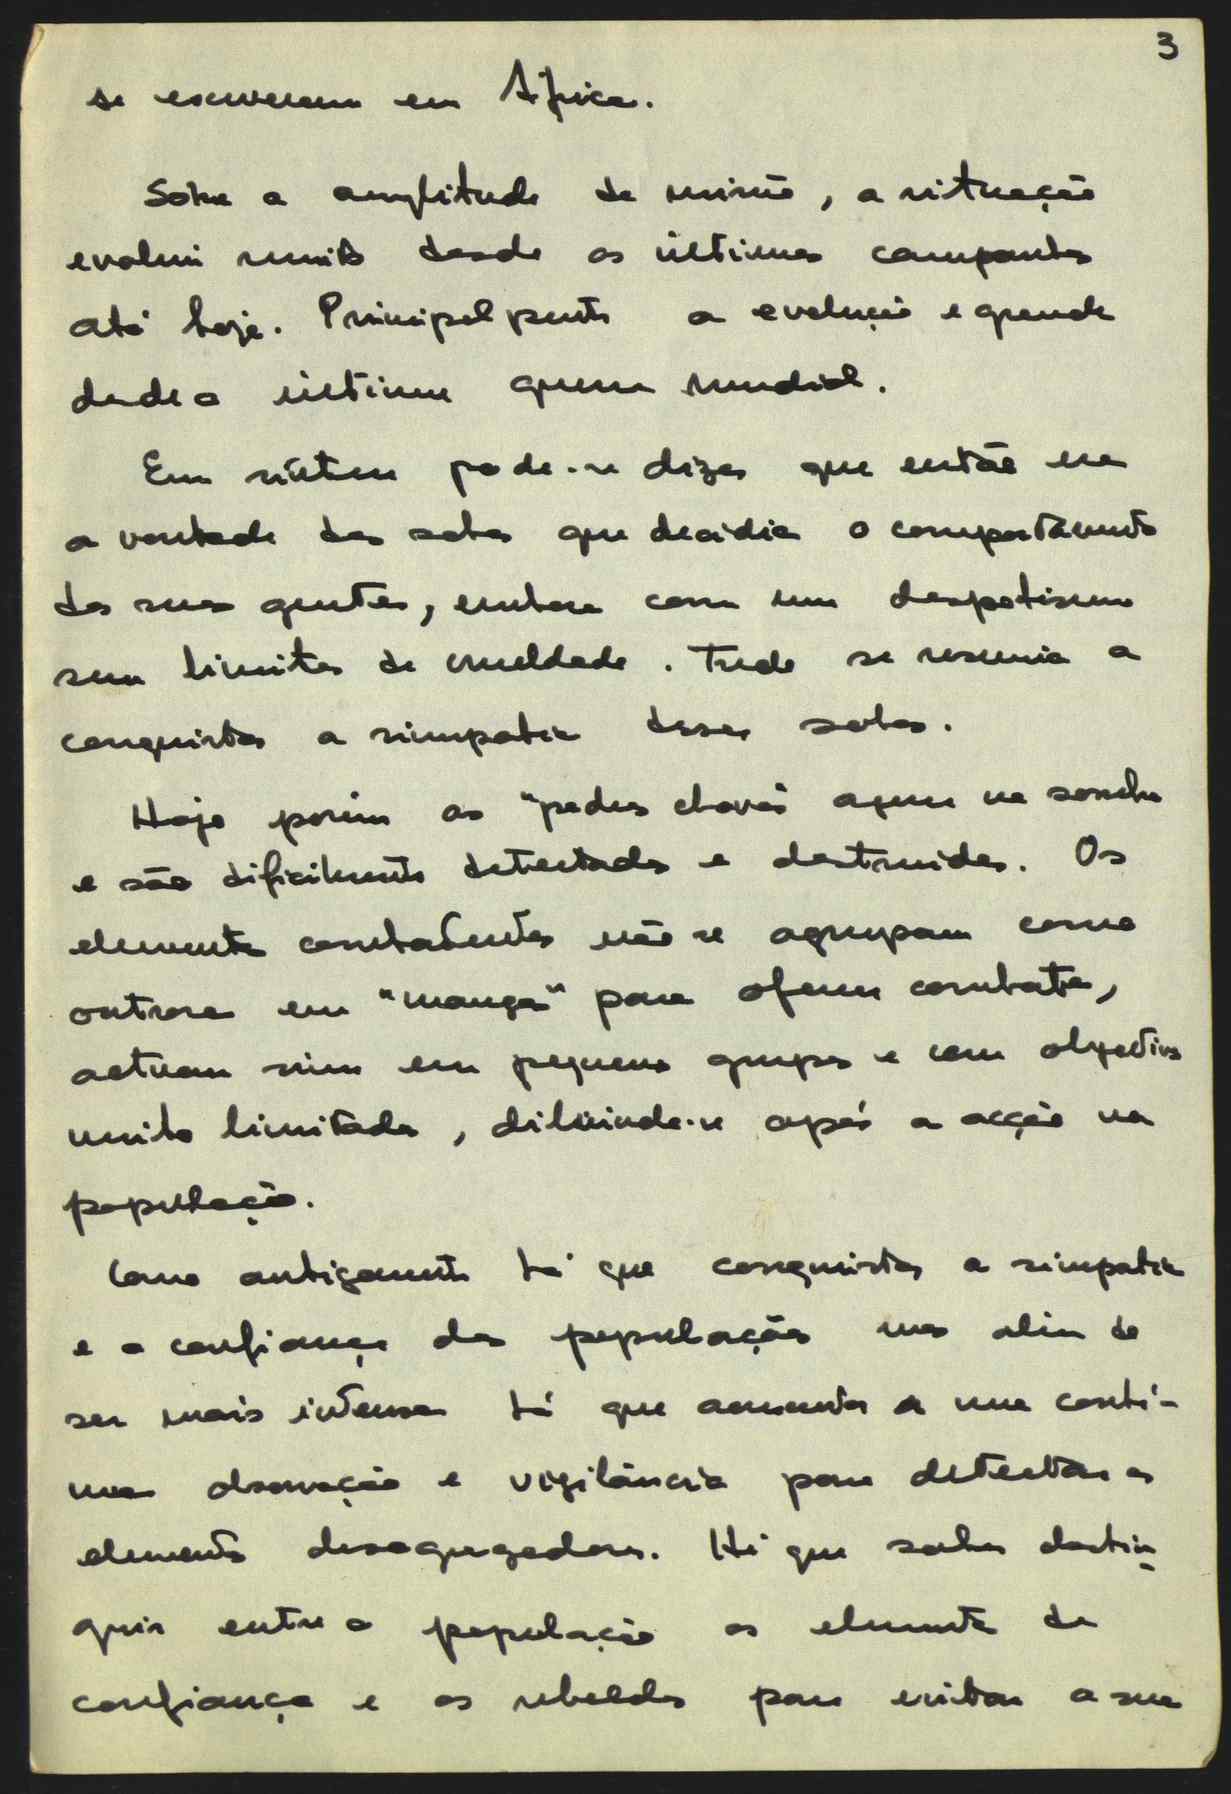 3
se escreveram em África.
Sobre a amplitude da missão, a situação
evolui muito desde os últimos campanhas
até hoje. Principalmente a evolução é grande
desde a última guerra mundial.
Em síntese pode-se dizer que então era
a vontade dos sobas que decidia o comportamento
das suas gentes, embora com um despotismo
sem limites de crueldade. Tudo se resumia a
conquistar a simpatia desses sobas.
Hoje porém as "pedras chaves" agem na sombra
e são dificilmente detectadas e destruídas. Os
elementos combatentes não se agrupam como
outrora em "manga" para oferecer combate,
actuam sim em pequenos grupos e com objectivos
muito limitados, diluindo-se após a acção na
população.
Como antigamente há que conquistar a simpatia
e a confiança das populações mas além de
ser mais intensa há que aumentar a uma contí-
nua observação e vigilância para detectar os
elementos desagregadores. Há que saber destin-
guir entre a população os elementos de
confiança e os rebeldes para evitar a sua